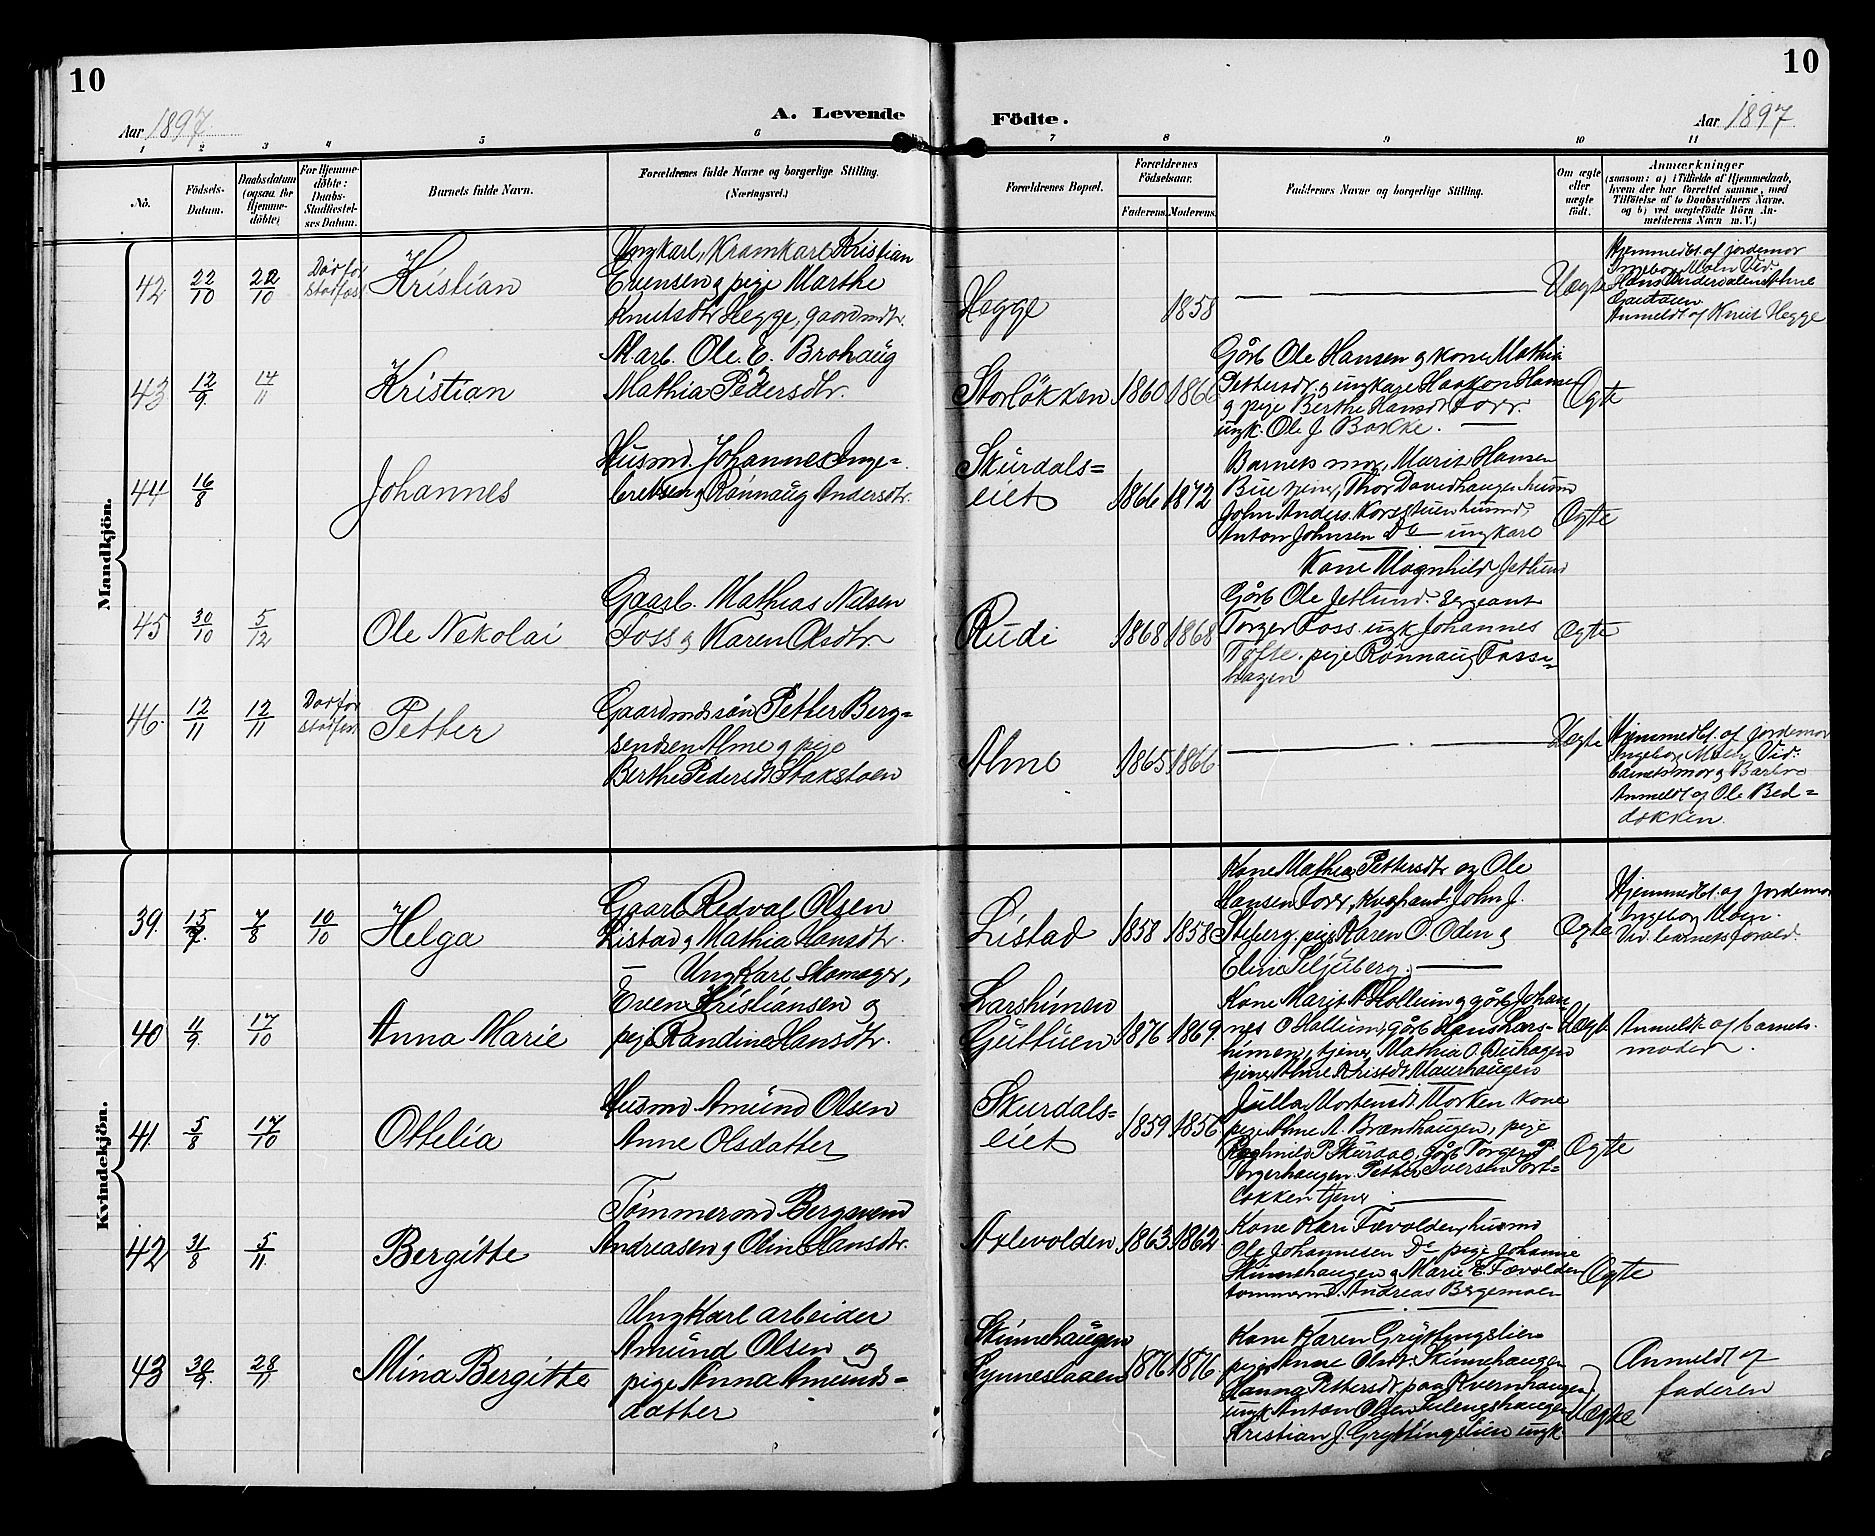 10
10
Aar 1897
A. Levende
Födte.
Aar 1897.
1 2 3 4 5 6 7 8 9 10 11
No.
Födsels-
Datum.
Daabsdatum
(ogsaa for
Hjemme-
döbte)
For Hjemme-
döbte:
Daabs-
Stadfæstel-
ses Datum.
Barnets fulde Navn.
Forældrenes fulde Navne og borgerlige Stilling.
(Næringsvei.)
Forældrenes Bopæl.
Forældrenes
Födselsaar.
Faderens. Moderens.
Faddernes Navne og borgerlige Stilling.
Om ægte
eller
uægte
födt.
Anmærkninger
(saasom: a) i Tilfælde af Hjemmedaab,
hvem der har forrettet samme, med
Tilföielse af to Daabsvidners Navne.
og b) ved uægtefödte Börn An-
melderens Navn m. V.)
Mandkjön.
42 22/10 22/10
Död før
Kristian
Ungkarl, Kramkarl Kristian
Evensen og pige Marthe
Knutsdtr Hegge, gaardmdtr.
Hegge 1858
Uægte
Hjemmedbt. af jordemor
Ingebor Moen Vid.
Anmeldt af Knut Hegge
43 12/9. 14/11
Kristian
Arb. Ole E. Brohaug
og
Mathia Pedersdtr.
Storlökken 1860 1866
Gårb Ole Hansen og kone Mathia
Pettersdtr. og ungkarl Haakon Hansen
og pige Berthe Hansdt Forr.
ungk. Ole J. Bakke.
Ægte
44 16/8
Johannes
Husmd. Johannes Inge-
bretsen og Rønnaug Andersdtr.
Skurdals=
eiet 1866 1872
Barnets mor, Marit Hansen
Bue tjener, Thor Davidhaugen husmd
John Anders. Korsstuen husmd,
Anton Johnsen Do — ungkarl
Ægte
45 30/10 5/12
Ole Nekolai
Gaarb. Mathias Nilsen
Foss og Karen Olsdtr.
Rudi 1868 1868
Kone Magnhild Jetlund
Gårb Ole Jetlund. Sergeant
Torger Foss. ungk Johannes
Tofte. pige Rønnaug Fosse=
hagen
Ægte
46. 12/11 12/11
Død før
Petter
Gaardmdssøn Petter Berg=
sendsen Alme og pige
Berthe Pedersdt Stakstoen
Alme 1865 1866
Uægte
Hjemmedbt. af jordemor
Ingebor Moen Vid:
barnets mor og Barbro
Anmeldt af Ole Bed=
dokken.
Kvindekjön.
39. 15/7. 7/8 10/10
Helga
Gaarb Redval Olsen
Listad og Mathia Hansdtr.
Listad 1858 1858
Kone Mathea Pettersdtr og Ole
Hansen Forr, Kvæghandl. John J.
Steberg. pige Karen O. Oden og
Eline Siljeberg.
Ægte
Hjemmedbt. af jordemor
Ingebor Moen.
Vid. barnets foræld.
40 11/9. 17/10
Anna Marie
Ungkarl Skomager,
Even Kristiansen og
pige Randine Hansdtr.
Larshimen
Guttuen 1876 1869.
Kone Marit Hollum og gårb Johan-
nes O Hollum, gårb Hans Lars-
himen, tjener Mathia O. Buhagen
tjener Alme Kristdt.
Uægt
Anmeldt af barnets
moder.
41. 5/8 17/10
Ottelia
Husmd Amund Olsen
Anne Olsdatter
Skurdals=
eiet 1859 1856.
Julla Mortensdt Morken kone
pige Anne A. Brændhaugen, pige
Ragnhild P. Skurdal, gårb Torger P.
Torgerhaugen. Petter Iversen Tort=
løkken tjener
Ægte
42 31/8 5/11.
Bergitte
Tømmermd Bergsvend
Andreasen og Oline Hansdtr.
Axlevolden 1863 1862.
Kone Kari Fævolden, husmd
Ole Johannesen Do pige Johanne
Skinnehaugen og Marie E. Fævolden
tømmermd. Andreas Bergemoen
Ægte
43 30/9. 28/11
Mina Bergitte
Ungkarl arbeider
Amund Olsen og
pige Anna Amunds=
datter
Skinnehaugen
Synneslaaen 1876 1876.
Kone Karen Grytingslien
pige Anne Olsdt. Skinnehaugen
Hanna Pettersdt paa Kvernhaugen,
ungk Anton Olsen
Kristian J. Grytingslien ungk
Uægte
Anmeldt af
faderen